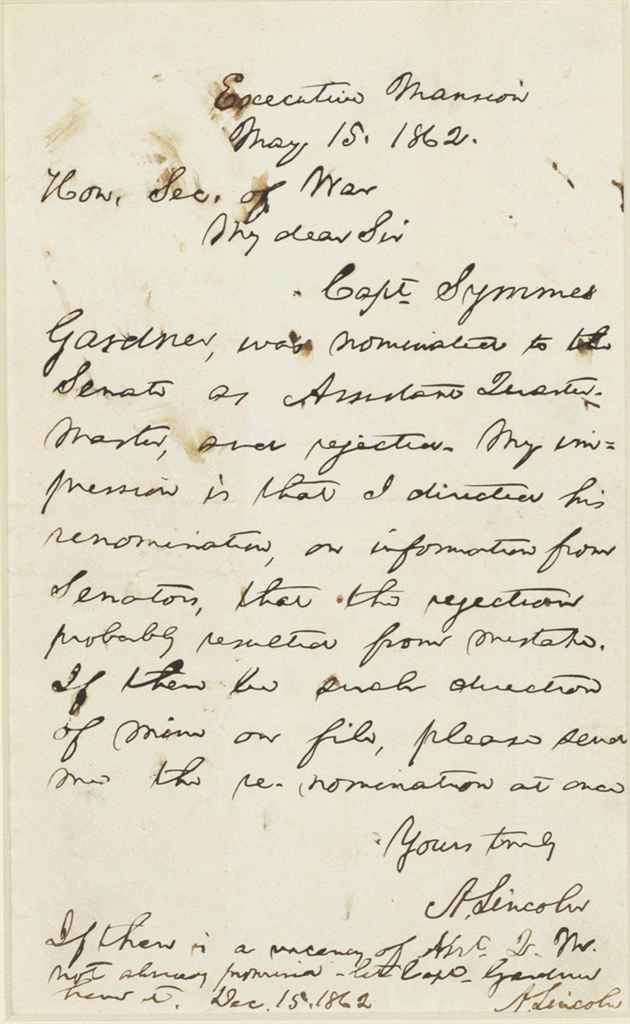 Executive Mansion
May 15. 1862.
Hon. Sec. of War
My dear Sir
Capt. Symmes
Gardner, was nominated to the
Senate as Assistant Quarter-
Master, and rejected. My im=
pression is that I directed his
renomination, on information from
Senators, that the rejection
probably resulted from mistake.
If there be such direction
of mine on file, please send
me the re-nomination at once
Yours truly
A. Lincoln
If there is a vacancy of Asst. Q. M.
not already promised - let Capt. Gardner
have it. Dec. 15. 1862 A. Lincoln